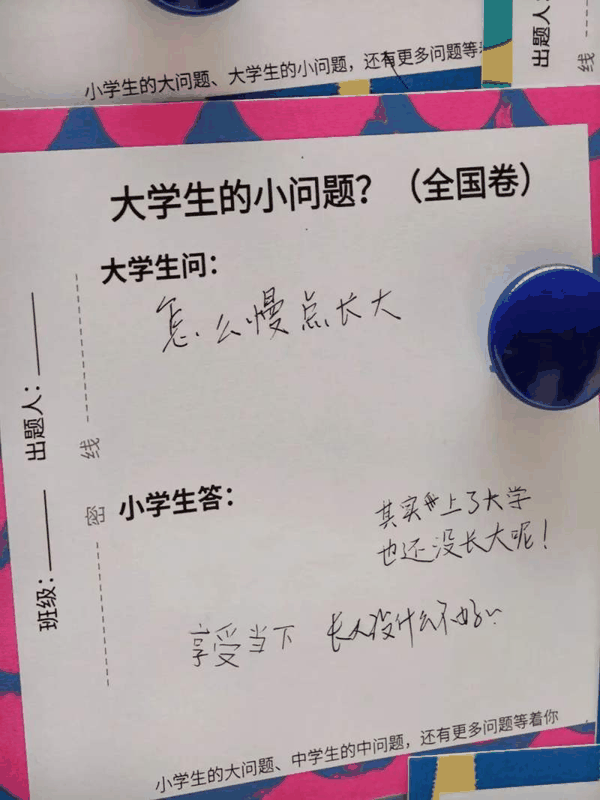 小学生的大问题、大学生的小问题,还有更多问题等
出题人:
线
大学生的小问题?(全国卷)
大学生问:
怎么慢点长大
出题人:
线
密
班级:
小学生答:
其实上了大学
也还没长大呢!
享受当下 长大没什么不好
小学生的大问题、中学生的中问题,还有更多问题等着你